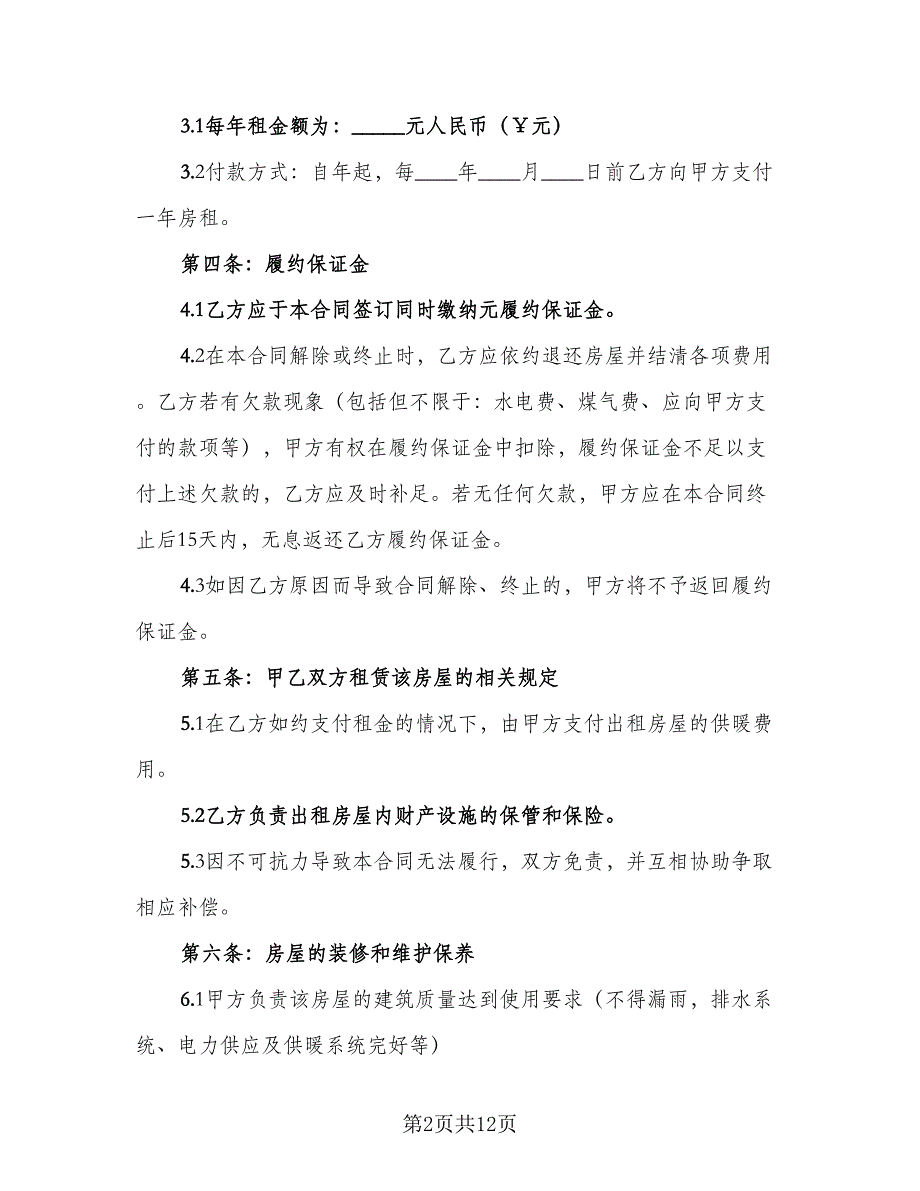 3.1每年租金额为：_____元人民币（￥元）
3.2付款方式：自年起，每____年____月____日前乙方向甲方支付
一年房租。
第四条：履约保证金
4.1乙方应于本合同签订同时缴纳元履约保证金。
4.2在本合同解除或终止时，乙方应依约退还房屋并结清各项费用
。乙方若有欠款现象（包括但不限于：水电费、煤气费、应向甲方支
付的款项等），甲方有权在履约保证金中扣除，履约保证金不足以支
付上述欠款的，乙方应及时补足。若无任何欠款，甲方应在本合同终
止后15天内，无息返还乙方履约保证金。
4.3如因乙方原因而导致合同解除、终止的，甲方将不予返回履约
保证金。
第五条：甲乙双方租赁该房屋的相关规定
5.1在乙方如约支付租金的情况下，由甲方支付出租房屋的供暖费
用。
5.2乙方负责出租房屋内财产设施的保管和保险。
5.3因不可抗力导致本合同无法履行，双方免责，并互相协助争取
相应补偿。
第六条：房屋的装修和维护保养
6.1甲方负责该房屋的建筑质量达到使用要求（不得漏雨，排水系
统、电力供应及供暖系统完好等）
第2页共12页